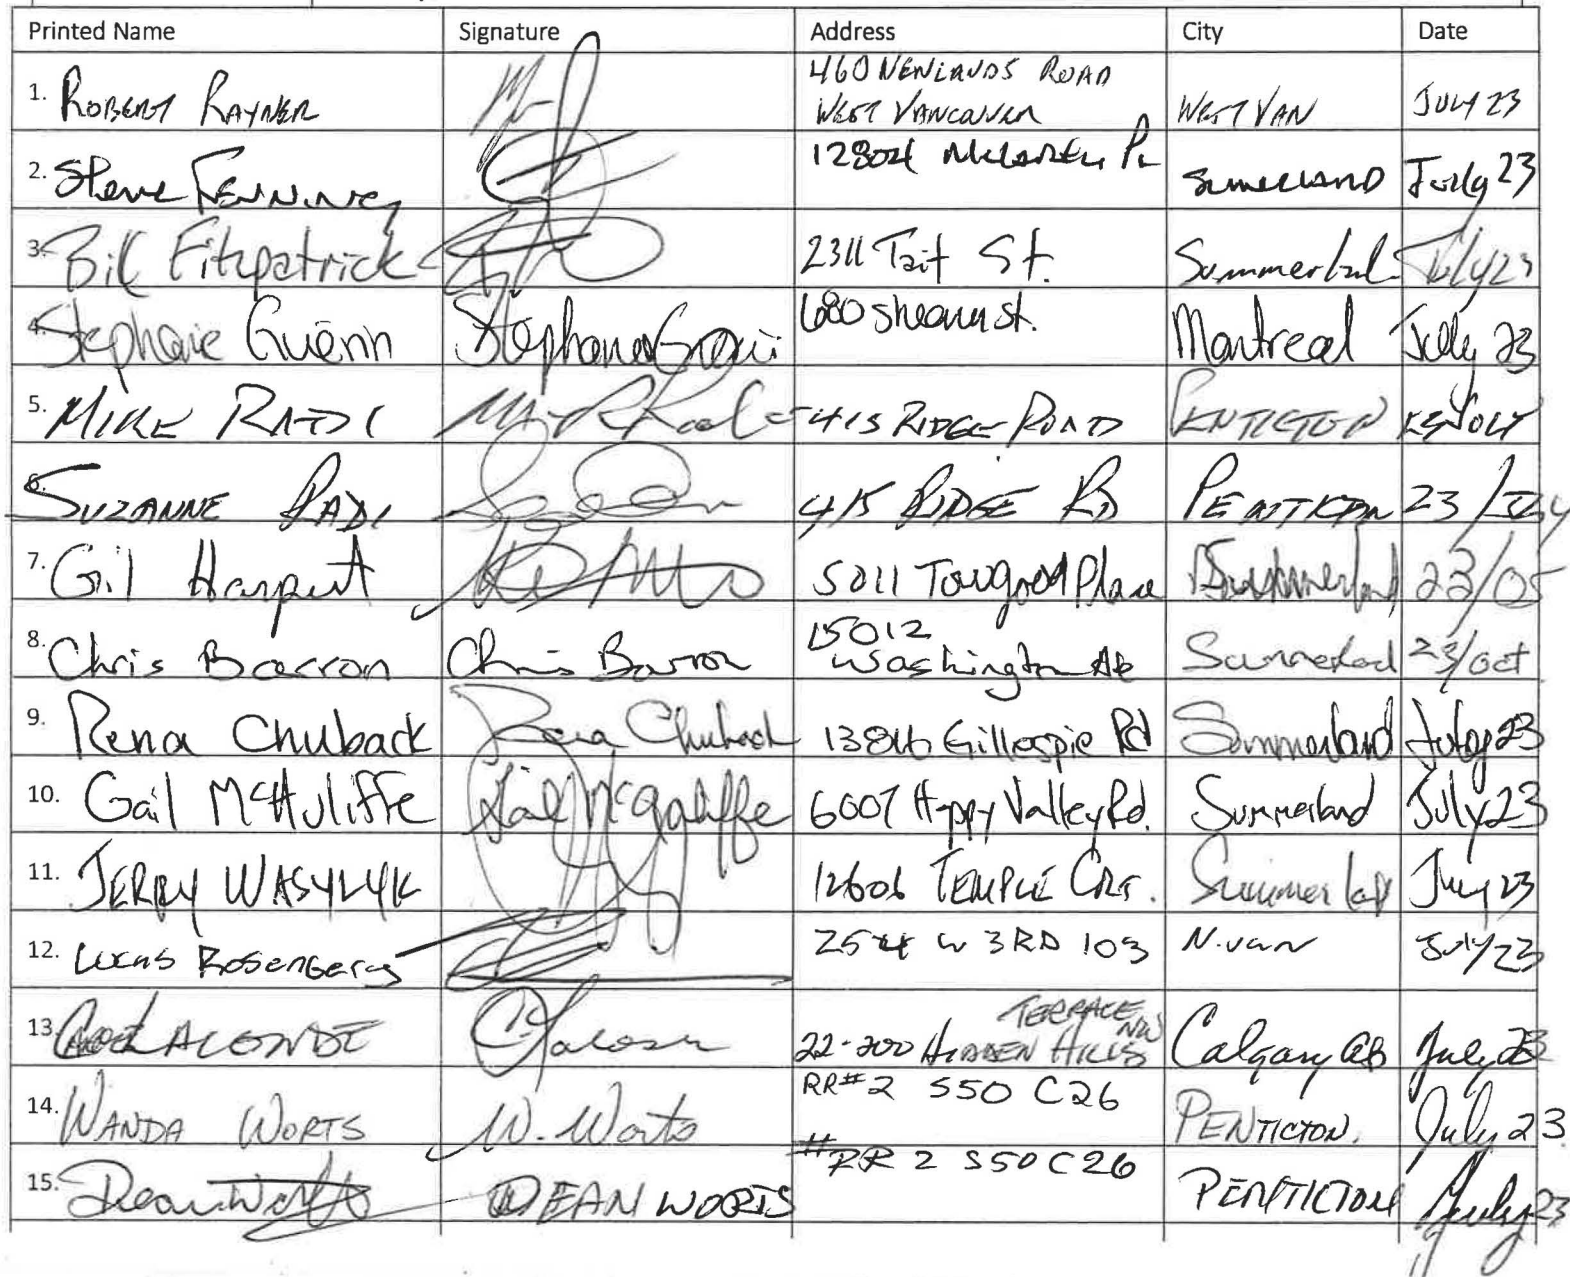 Printed Name Signature Address City Date
1. ROBERT RAYNER 460 NEWLANDS ROAD
WEST VANCOUVER WEST VAN JULY 23
2. Steve FENNING 12804 Pl SUMMERLAND July 23
3. Bill Fitzpatrick 2311 Tait St. Summerland July 23
4. Stephanie Guérin 680 shearer st. Montreal July 23
5. MIKE RADI 415 RIDGE ROAD PENTICTON 23 JULY
6. SUZANNE RADI 415 RIDGE RD PENTICTON 23/July
7. Gil 5011 Tougood Place Summerland 23/05
8. Chris Barron Chris Barron 15012
Washington Ave Summerland 23/oct
9. Rena Chuback Rena Chuback 13816 Gillespie Rd Summerland July 23
10. Gail McAuliffe Gail McAuliffe 6007 Happy Valley Rd. Summerland July 23
11. JERRY WASYLYK 12606 TEMPLE CRT. Summerland July 23
12. LUCAS ROSENBERG 254 W 3RD 103 N.VAN July/23
13. LALONDE TERRACE NW
22-200 HIDDEN HILLS Calgary AB July 23
14. WANDA WORTS W. Worts RR#2 S50 C26 PENTICTON. July 23
15. Dean Worts DEAN WORTS #RR 2 S50 C26 PENTICTON July 23